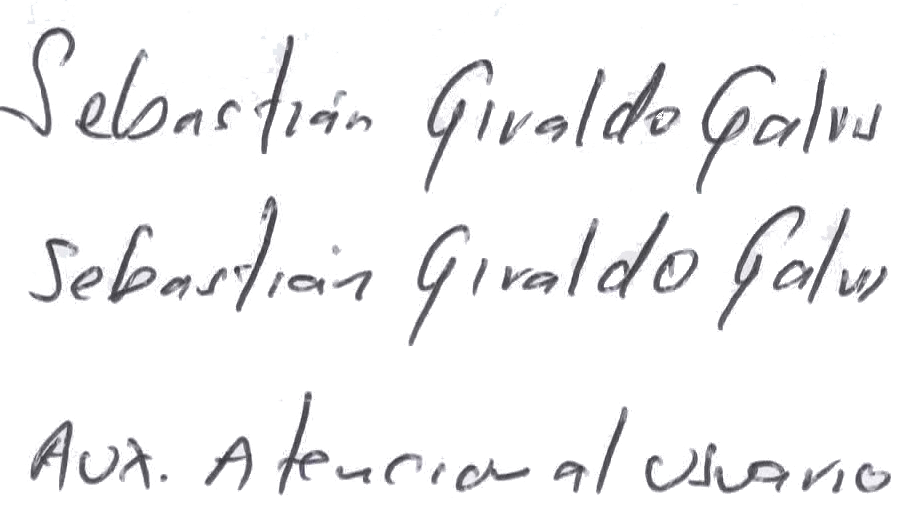 Sebastián Giraldo Galvis
Sebastián Giraldo Galvis
Aux. Atencion al usuario